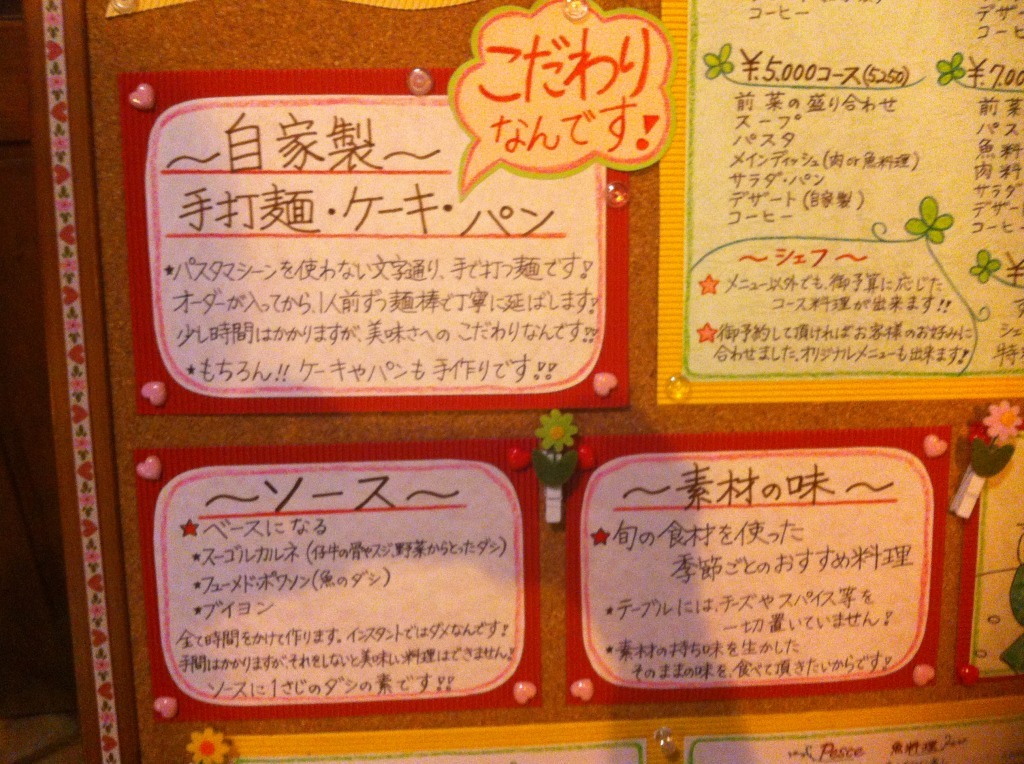 こだわり
なんです!
～自家製～
手打麺・ケーキ・パン
★パスタマシーンを使わない文字通り、手で打つ麺です!
オーダーが入ってから、1人前ずつ麺棒で丁寧に延ばします!
少し時間はかかりますが、美味さへの こだわりなんです!!
★もちろん!! ケーキやパンも 手作りです!!
コーヒー
¥5.000コース(5250)
前菜の盛り合わせ
スープ
パスタ
メインディッシュ(肉or魚料理)
サラダ・パン
デザート(自家製)
コーヒー
～シェフ～
★メニュー以外でも、御予算に応じた
コース料理が出来ます!!
★御予約して頂ければお客様のお好みに
合わせました、オリジナルメニューも出来ます!
デザ
コーヒ
¥7.00
前菜
パス
魚料
肉料
サラダ
デザー
コーヒ
～ソース～
★ベースになる
★スーゴルカルネ(仔牛の骨やスジ、野菜からとったダシ)
★フューメド・ポワソン(魚のダシ)
★ブイヨン
全て時間をかけて作ります。インスタントではダメなんです!
手間はかかりますが、それをしないと美味しい料理はできません!
ソースに1さじのダシの素です!!
～素材の味～
★旬の食材を使った
季節ごとのおすすめ料理
★テーブルには、チーズやスパイス等を
一切置いていません!
★素材の持ち味を生かした
そのままの味を、食べて頂きたいからです!
Pesce 魚料理